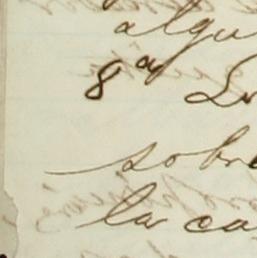 algu
8ª
sobre
la ca